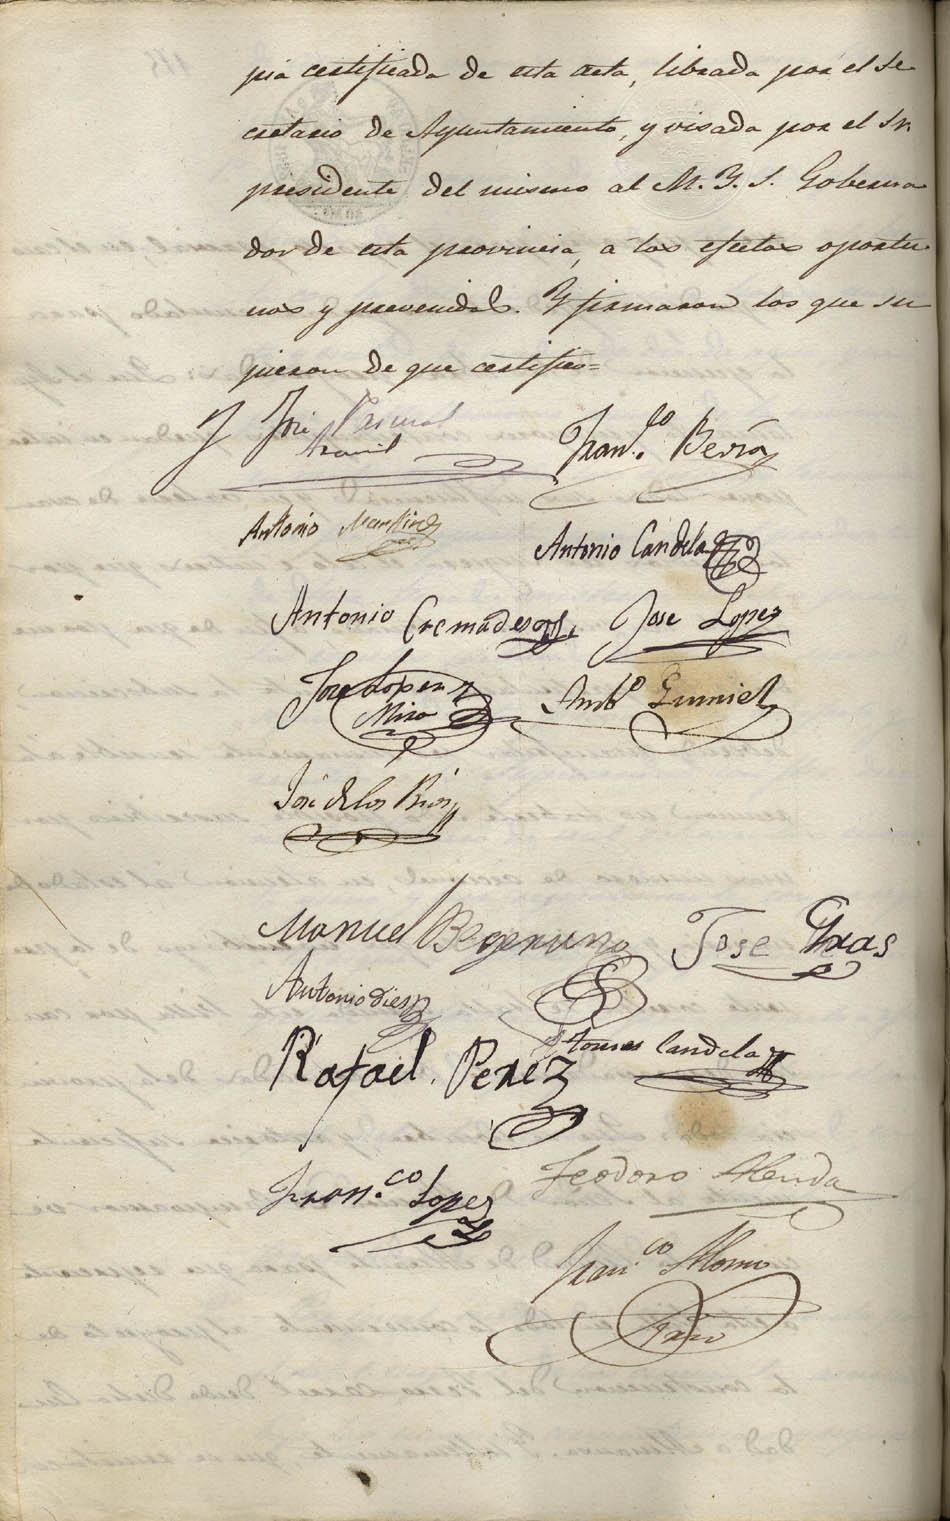 pia certificada de esta acta, librada por el Se
cretario de Ayuntamiento, y visada por el Sr
presidente del mismo al M. Y. S. Goberna
dor de esta provincia, a los efectos oportu
nos y prevenidos. Y firmaron los que su
pieron de que certifico=
José Pascual
Fran.co Bevía
Antonio Martinez
Antonio Candela
Antonio Cremades
Jose Lopez
Jose Lopez
Miro
Amb.o Gumiel
José de los Rios
Manuel
Jose Gras
Antonio dies
Tomas Candela
Rafael Perez
Fran.co Lopez
Teodoro Alenda
Fran.co Alonso